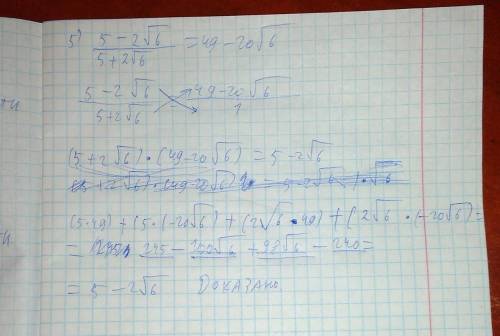 5) (5 - 2√6)/(5 + 2√6) = 49 - 20√6
(5 - 2√6)/(5 + 2√6) (49 - 20√6)/1
(5 + 2√6) · (49 - 20√6) = 5 - 2√6
(5·49) + (5·(-20√6) + (2√6 · 49) + (2√6 · (-20√6) =
= 245 - 100√6 + 98√6 - 240 =
= 5 - 2√6 Доказано.